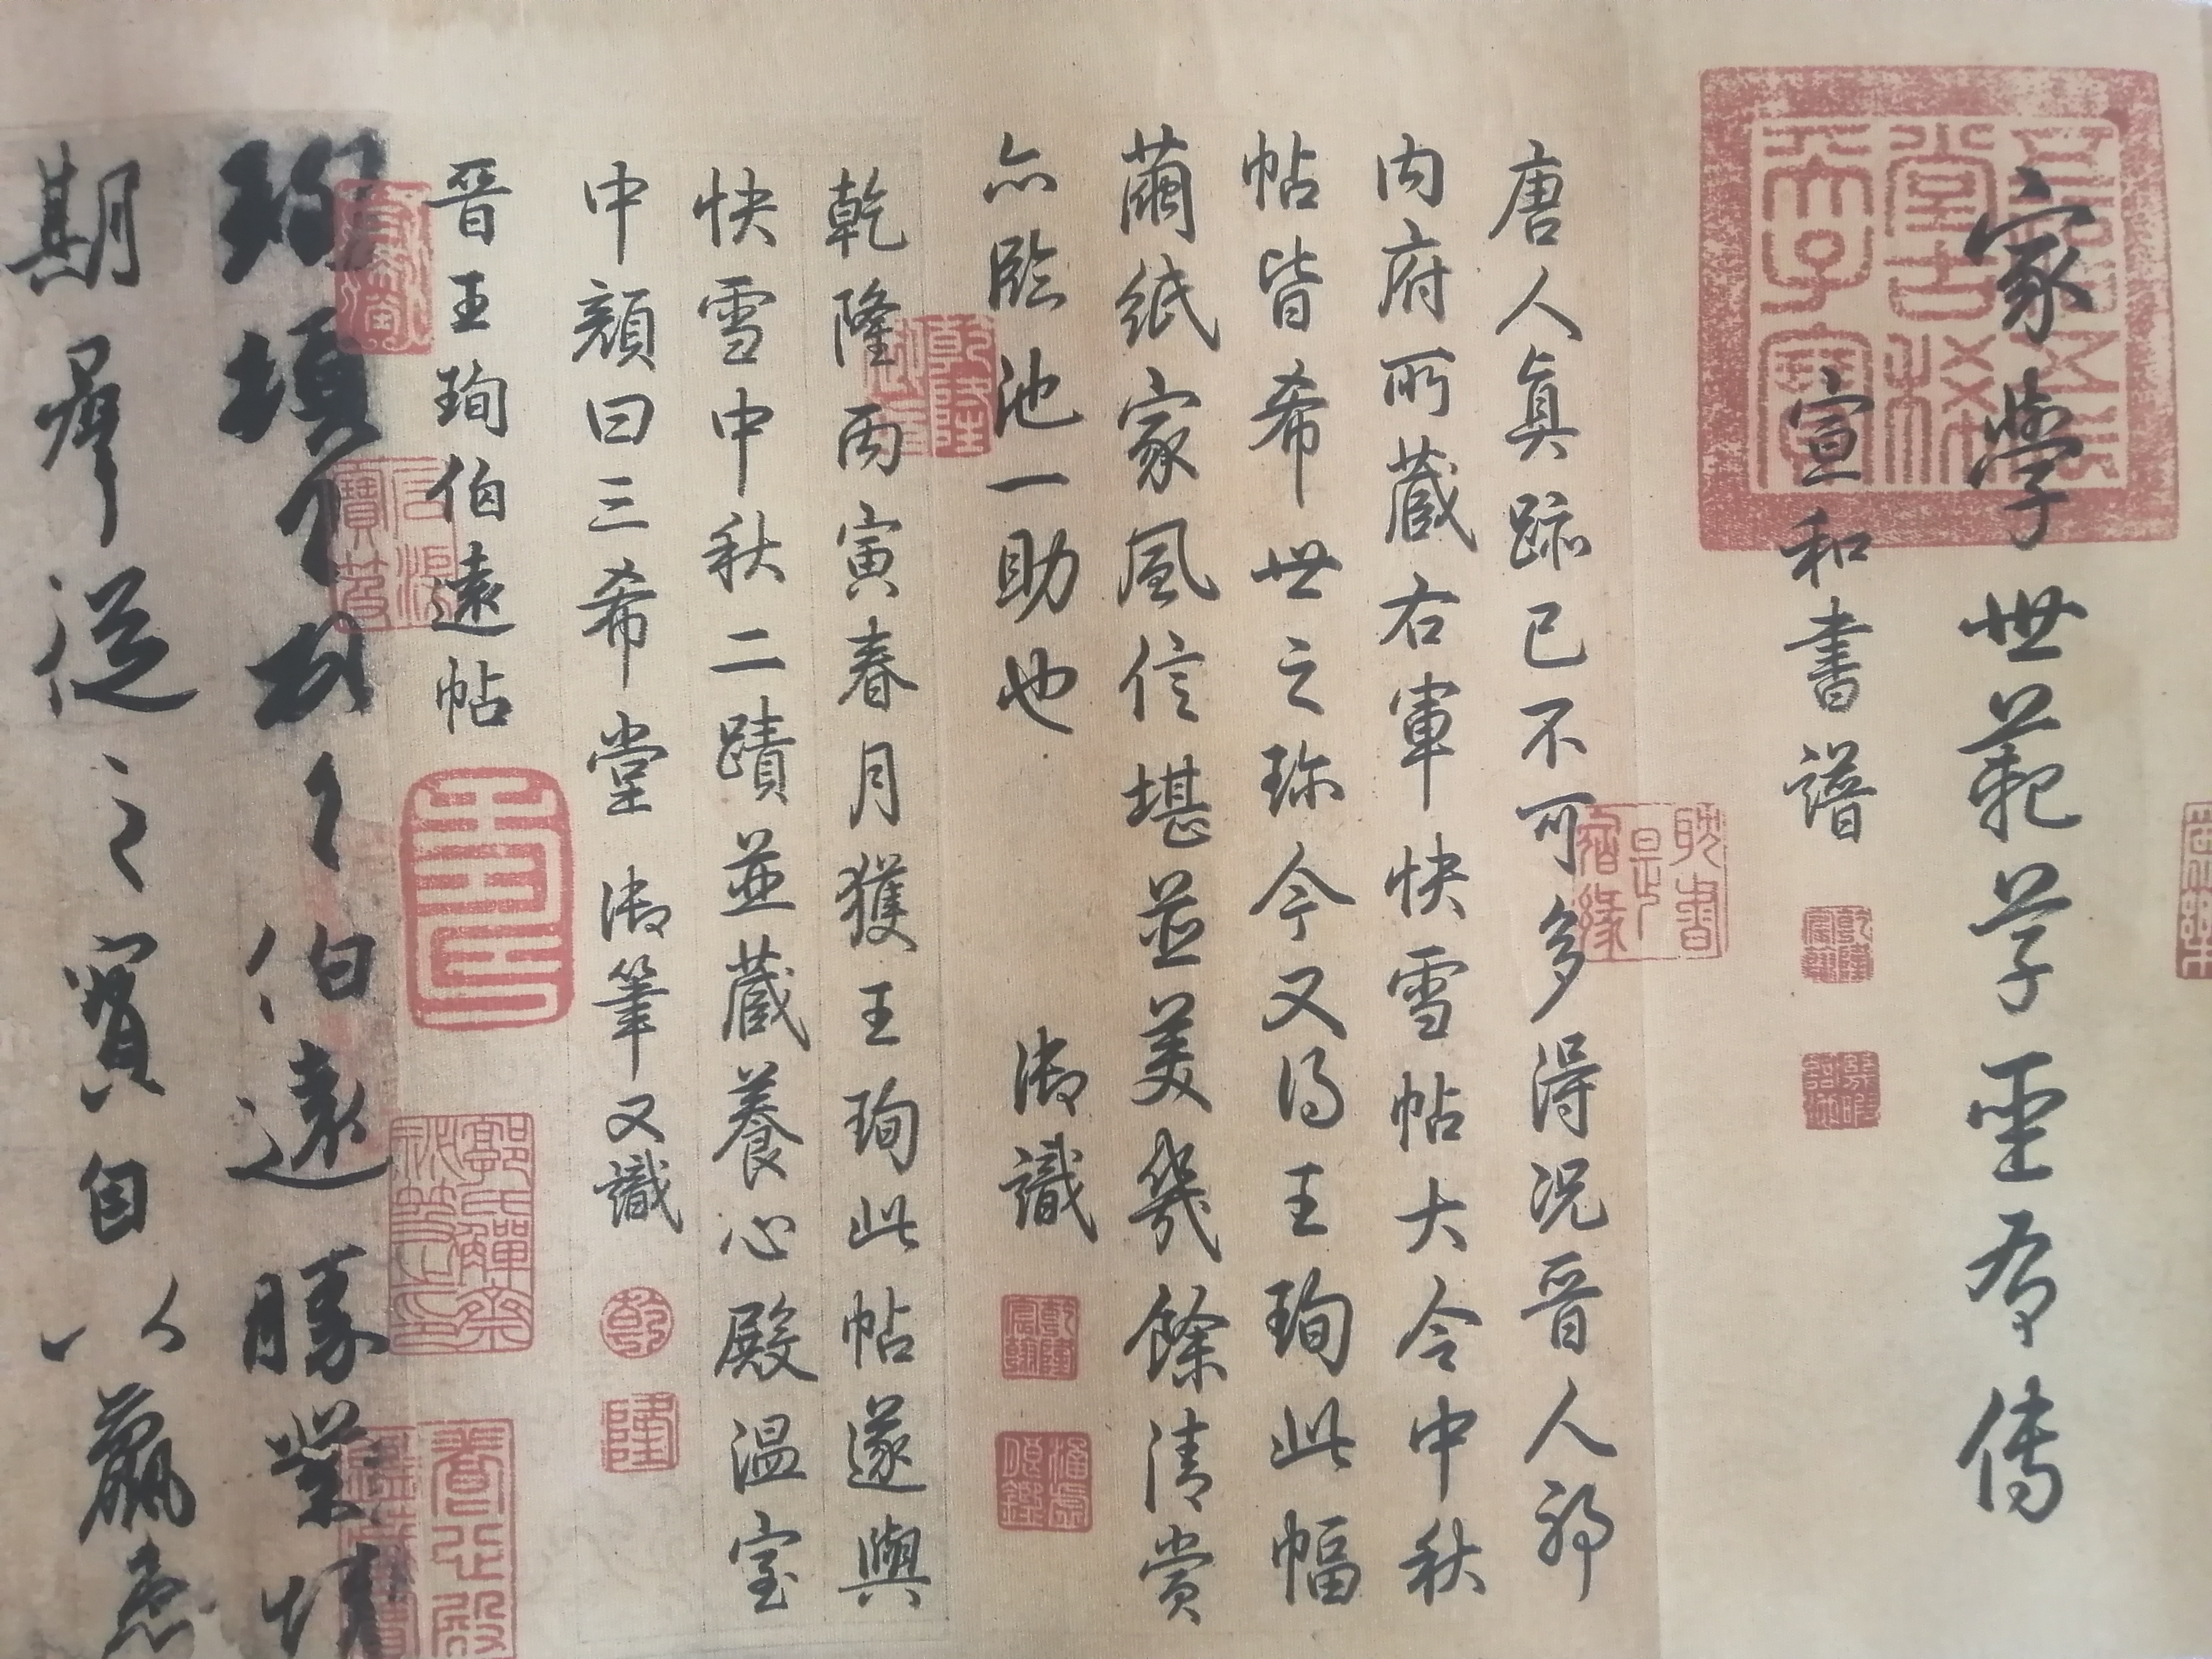 家學世範草聖有傳
宣和書譜
唐人真跡已不可多得況晉人耶
内府所藏右軍快雪帖大令中秋
帖皆希世之珍今又得王珣此幅
繭紙家風信堪並美幾餘清賞
亦臨池一助也 御識
乾隆丙寅春月獲王珣此帖遂與
快雪中秋二蹟並藏養心殿溫室
中顏曰三希堂 御筆又識
晉王珣伯遠帖
珣頓首頓首伯遠勝業情
期群從之寶自以羸患